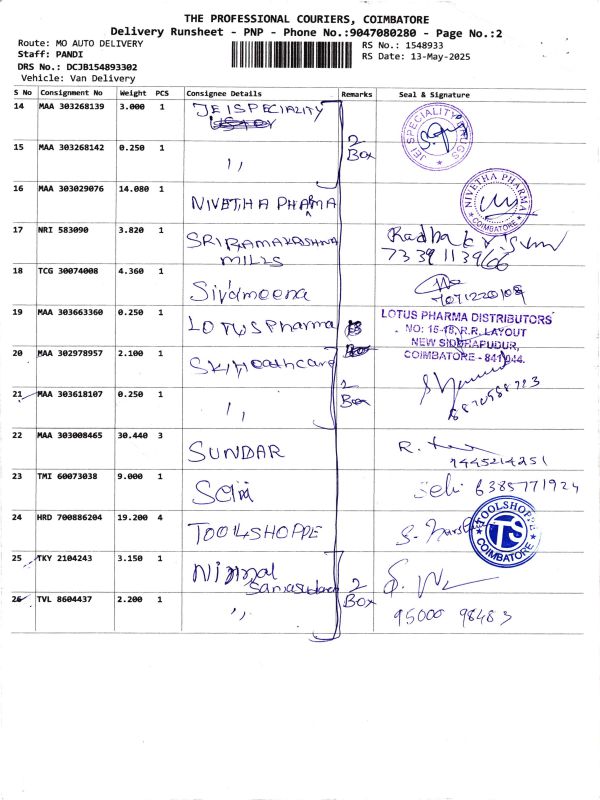 THE PROFESSIONAL COURIERS, COIMBATORE
Delivery Runsheet - PNP - Phone No.:9047080280 - Page No.:2
Route: MO AUTO DELIVERY
Staff: PANDI
DRS No.: DCJB154893302
Vehicle: Van Delivery
RS No.: 1548933
RS Date: 13-May-2025
S No Consignment No Weight PCS Consignee Details Remarks Seal & Signature
14 MAA 303268139 3.000 1 JEISPECIALITY
JEI SPECIALITY DRUGS
15 MAA 303268142 0.250 1 ,, 2 Box
16 MAA 303029076 14.080 1 NIVETHA PHARMA
NIVETHA PHARMA COIMBATORE
17 NRI 583090 3.820 1 SRIRAMAKRISHNA MILLS
18 TCG 30074008 4.360 1 Sivameena
19 MAA 303663360 0.250 1 LOTUS Pharma
LOTUS PHARMA DISTRIBUTORS
NO: 15-18, R.R. LAYOUT
NEW SIDDHAPUDUR,
COIMBATORE - 641 044.
20 MAA 302978957 2.100 1 SKI Heathcare
21 MAA 303618107 0.250 1 ,, 2 Box
22 MAA 303008465 30.440 3 SUNDAR
9445214251
23 TMI 60073038 9.000 1 6385771924
24 HRD 700886204 19.200 4 TOOLSHOPPE
TOOLSHOPPE TS COIMBATORE
25 TKY 2104243 3.150 1 2 Box
26 TVL 8604437 2.200 1 ,, 95000 98483